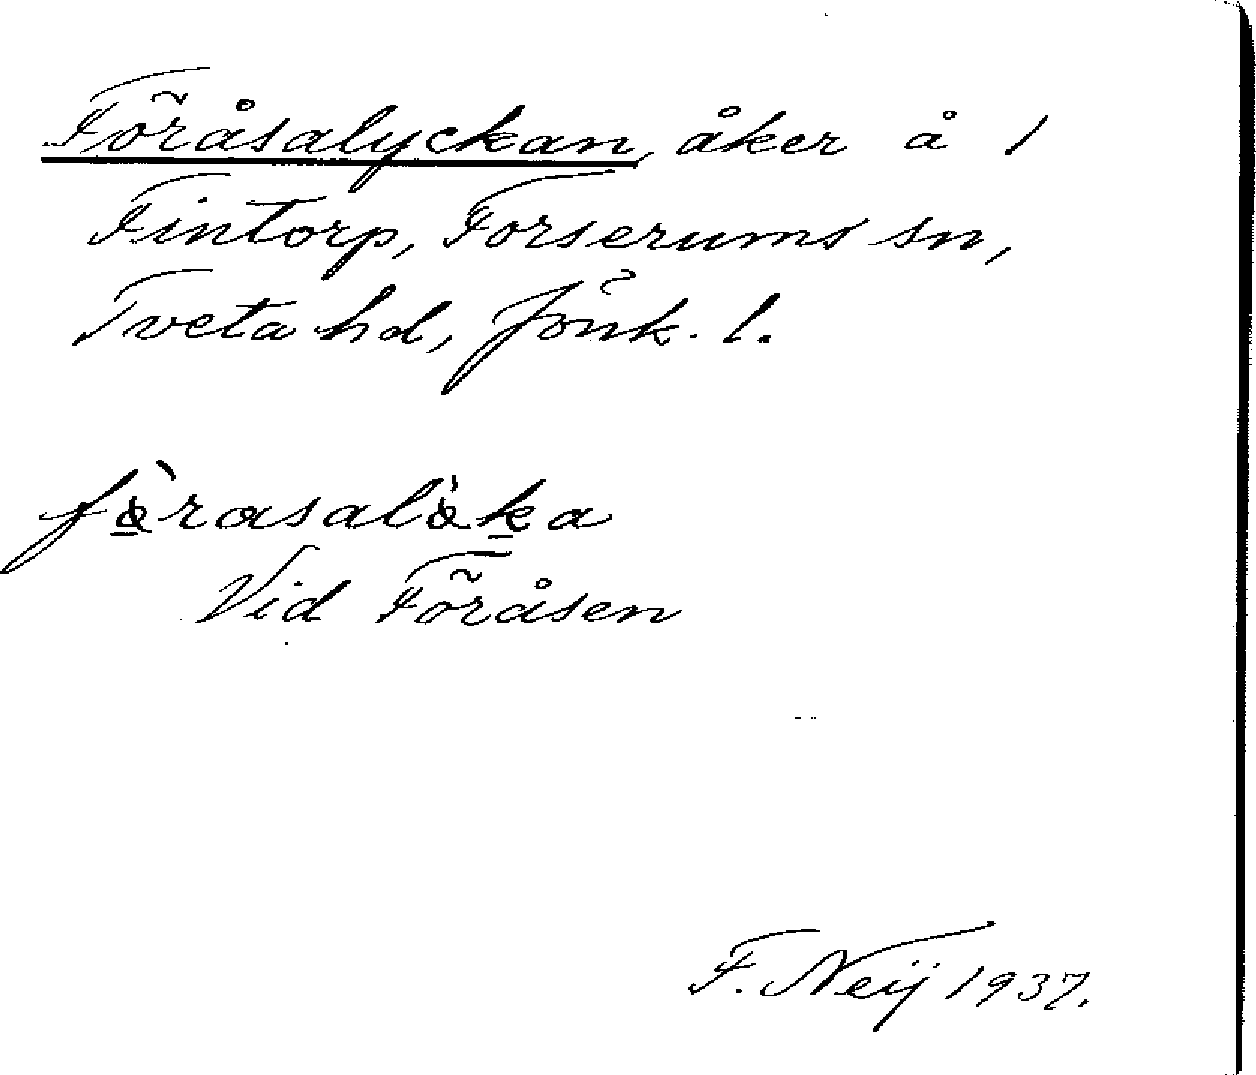 Föråsalyckan, åker å 1
Fintorp, Forserums sn,
Tveta hd, Jönk. l.
fö̀rasalö̀ka
Vid Föråsen
F. Neij 1937.